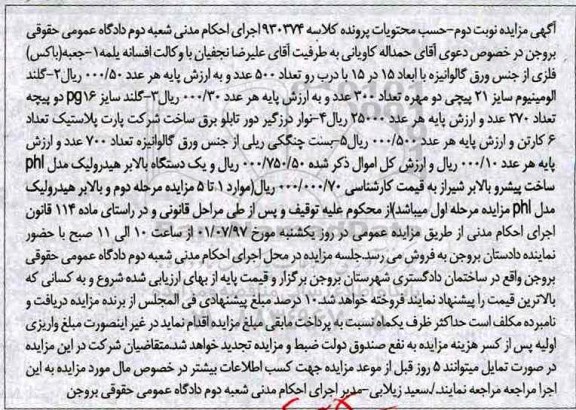 آگهی مزایده نوبت دوم-حسب محتویات پرونده کلاسه ۹۳۰۳۷۴اجرای احکام مدنی شعبه دوم دادگاه عمومی حقوقی
بروجن در خصوص دعوی آقای حمداله کاویانی به طرفیت آقای علیرضا نجفیان با وکالت افسانه یلمه۱-جعبه(باکس)
فلزی از جنس ورق گالوانیزه با ابعاد ۱۵ در ۱۵ با درب رو تعداد ۵۰۰ عدد و به ارزش پایه هر عدد ۰۰۰/۵۰ ریال۲-گلند
الومینیوم سایز ۲۱ پیچی دو مهره تعداد ۳۰۰ عدد و به ارزش پایه هر عدد ۰۰۰/۳۰ ریال۳-گلند سایز pg۱۶ دو پیچه
تعداد ۲۷۰ عدد و ارزش پایه هر عدد ۲۵۰۰۰ ریال۴-نوار درزگیر دور تابلو برق ساخت شرکت پارت پلاستیک تعداد
۶ کارتن و ارزش پایه هر عدد ۰۰۰/۵۰۰ ریال۵-بست چنگکی ریلی از جنس ورق گالوانیزه تعداد ۷۰۰ عدد و ارزش
پایه هر عدد ۰۰۰/۱۰ ریال و ارزش کل اموال ذکر شده ۰۰۰/۷۵۰/۵۰ ریال و یک دستگاه بالابر هیدرولیک مدل phl
ساخت پیشرو بالابر شیراز به قیمت کارشناسی ۰۰۰/۰۰۰/۷۰ ریال(موارد ۱ تا ۵ مزایده مرحله دوم و بالابر هیدرولیک
مدل phl مزایده مرحله اول میباشد)از محکوم علیه توقیف و پس از طی مراحل قانونی و در راستای ماده ۱۱۴ قانون
اجرای احکام مدنی از طریق مزایده عمومی در روز یکشنبه مورخ ۰۱/۰۷/۹۷از ساعت ۱۰ الی ۱۱ صبح با حضور
نماینده دادستان بروجن به فروش می رسد.جلسه مزایده در محل اجرای احکام مدنی شعبه دوم دادگاه عمومی حقوقی
بروجن واقع در ساختمان دادگستری شهرستان بروجن برگزار و قیمت پایه از بهای ارزیابی شده شروع و به کسانی که
بالاترین قیمت را پیشنهاد نمایند فروخته خواهد شد.۱۰ درصد مبلغ پیشنهادی فی المجلس از برنده مزایده دریافت و
نامبرده مکلف است حداکثر ظرف یکماه نسبت به پرداخت مابقی مبلغ مزایده اقدام نماید در غیر اینصورت مبلغ واریزی
اولیه پس از کسر هزینه مزایده به نفع صندوق دولت ضبط و مزایده تجدید خواهد شد.متقاضیان شرکت در این مزایده
در صورت تمایل میتوانند ۵ روز قبل از موعد مزایده جهت کسب اطلاعات بیشتر در خصوص مال مورد مزایده به این
اجرا مراجعه مراجعه نمایند./.سعید زیلابی-مدیر اجرای احکام مدنی شعبه دوم دادگاه عمومی حقوقی بروجن